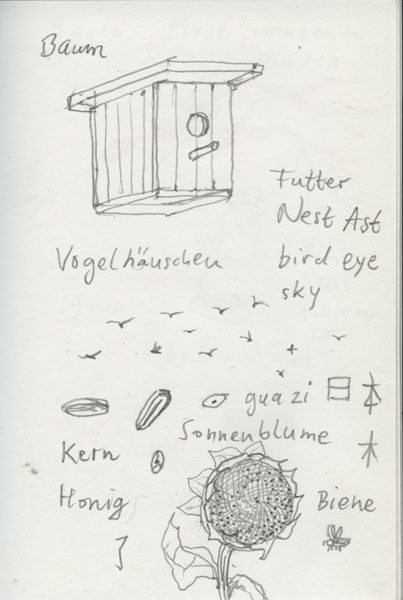 Baum
Futter
Nest Ast
Vogelhäuschen
bird eye
sky
guazi 日本
Sonnenblume
木
Kern
Honig
Biene